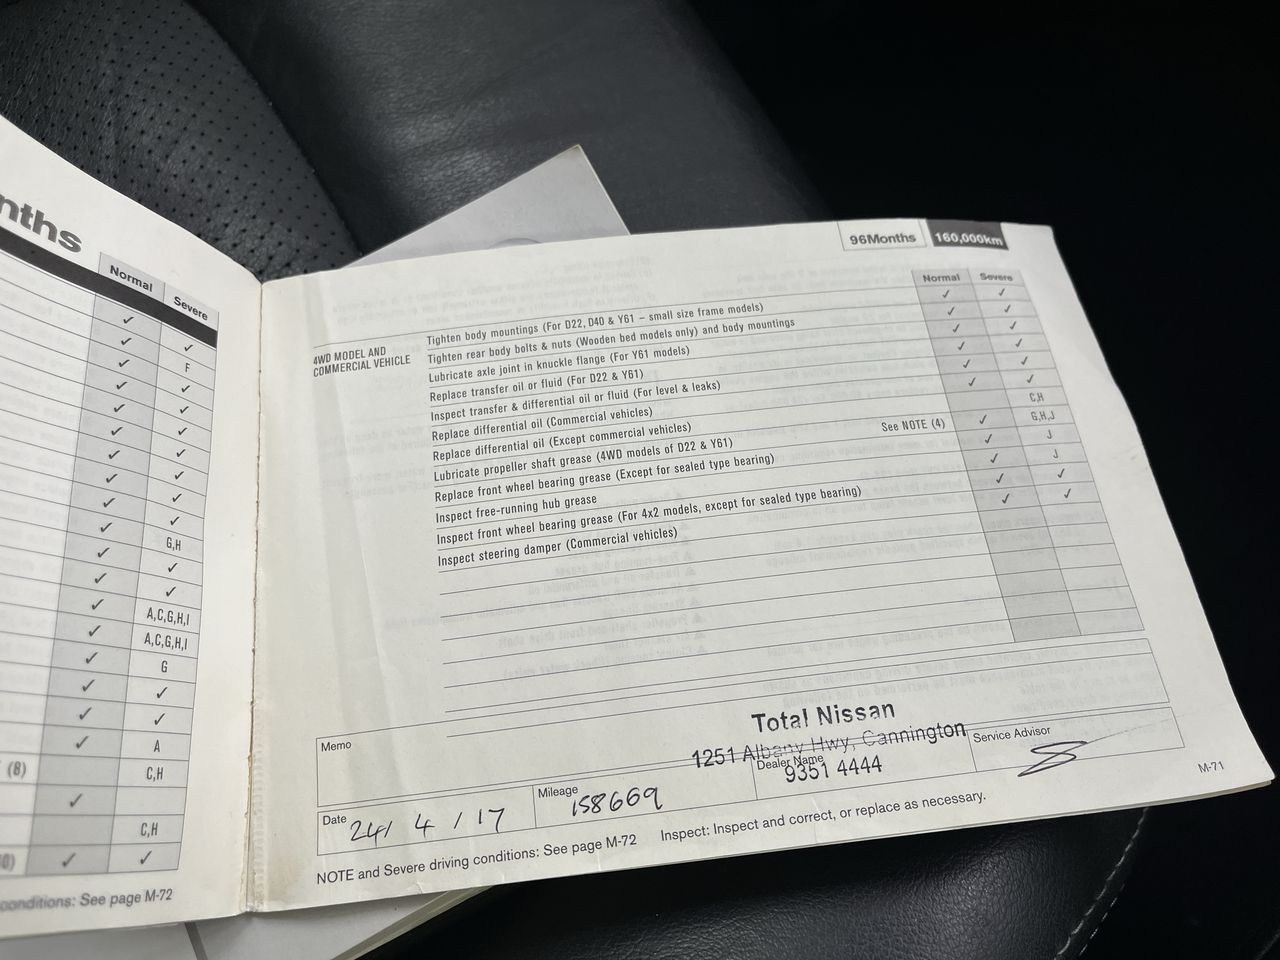 nths
Normal
Severe
✓
✓ ✓
✓ F
✓ ✓
✓ ✓
✓ ✓
✓ ✓
✓ ✓
✓ ✓
✓ G,H
✓ ✓
✓ ✓
✓ A,C,G,H,I
✓ A,C,G,H,I
✓ G
✓ ✓
✓ ✓
✓ A
(8) C,H
✓
C,H
✓ ✓
conditions: See page M-72
96Months 160,000km
Normal Severe
4WD MODEL AND
COMMERCIAL VEHICLE
Tighten body mountings (For D22, D40 & Y61 – small size frame models) ✓ ✓
Tighten rear body bolts & nuts (Wooden bed models only) and body mountings ✓ ✓
Lubricate axle joint in knuckle flange (For Y61 models) ✓ ✓
Replace transfer oil or fluid (For D22 & Y61) ✓ ✓
Inspect transfer & differential oil or fluid (For level & leaks) ✓ ✓
Replace differential oil (Commercial vehicles) ✓ ✓
Replace differential oil (Except commercial vehicles) C,H
Lubricate propeller shaft grease (4WD models of D22 & Y61) See NOTE (4) ✓ G,H,J
Replace front wheel bearing grease (Except for sealed type bearing) ✓ J
Inspect free-running hub grease ✓ J
Inspect front wheel bearing grease (For 4x2 models, except for sealed type bearing) ✓ ✓
Inspect steering damper (Commercial vehicles) ✓ ✓
Memo
Total Nissan
1251 Albany Hwy, Cannington
Dealer Name
9351 4444
Service Advisor
Date 24/ 4 / 17
Mileage 158669
NOTE and Severe driving conditions: See page M-72 Inspect: Inspect and correct, or replace as necessary.
M-71